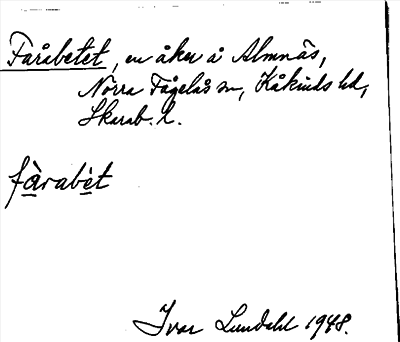 Fårabetet, en åker å Almnäs,
Norra Fågelås sn, Kåkinds hd,
Skarab. l.
fàrabèt
Ivar Lundahl 1948.